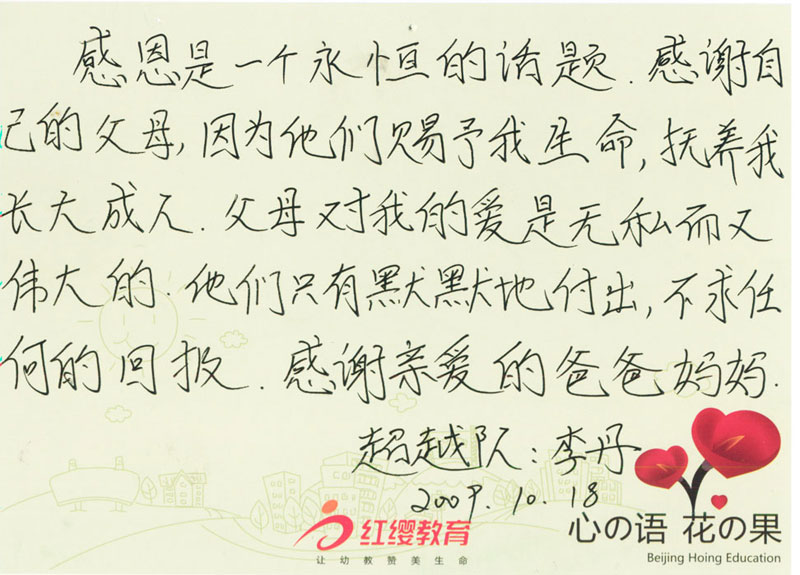 感恩是一个永恒的话题.感谢自
己的父母,因为他们赐予我生命,抚养我
长大成人.父母对我的爱是无私而又
伟大的.他们只有默默地付出,不求任
何的回报.感谢亲爱的爸爸妈妈.
超越队:李丹
2009.10.18
红缨教育
让幼教赞美生命
心の语 花の果
Beijing Hoing Education